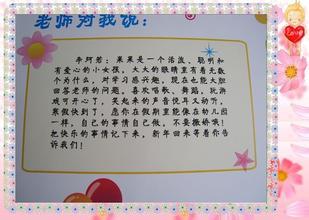 老师对我说：
李阿若：果果是一个活泼、聪明和
有爱心的小女孩，大大的眼睛里有着无数
个为什么，对学习感兴趣，现在也能大胆
回答老师的问题。喜欢唱歌、舞蹈，玩游
戏可开心了，笑起来的声音悦耳又动听，
寒假快到了，愿你在假期里能像在幼儿园
一样，自己的事情自己做，不要撒娇哦！
把快乐的事情记下来，新年回来等着你告
诉我们！